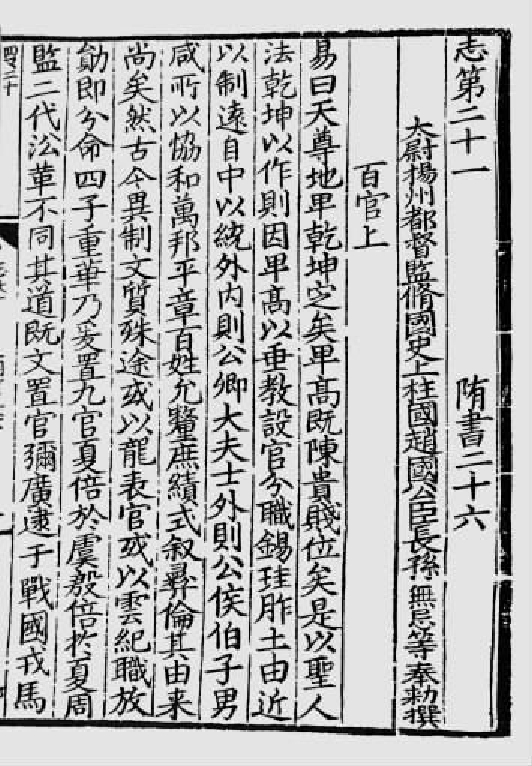 志第二十一　隋書二十六
太尉揚州都督監脩國史上柱國趙國公臣長孫無忌等奉勑撰
百官上
易曰天尊地卑乾坤定矣卑髙既陳貴賤位矣是以聖人
法乾坤以作則因卑髙以垂教設官分職錫珪胙土由近
以制遠自中以統外内則公卿大夫士外則公侯伯子男
咸所以協和萬邦平章百姓允釐庶績式叙彝倫其由来
尚矣然古今異制文質殊途或以龍表官或以雲紀職放
勛即分命四子重華乃爰置九官夏倍於虞殷倍於夏周
監二代沿革不同其道既文置官彌廣逮于戰國戎馬